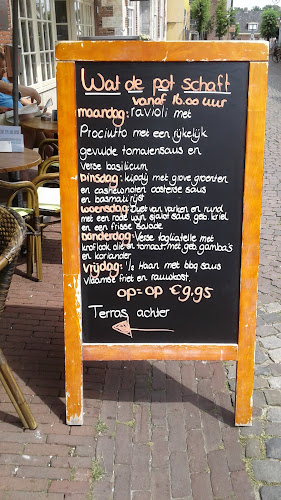 Wat de pot schaft
vanaf 16.00 uur
maandag: ravioli met
Prociutto met een rijkelijk
gevulde tomatensaus en
verse basilicum
Dinsdag: kipdij met grove groenten
en cashewnoten oosterse saus
en basmatirijst
woensdag: Duet van varken en rund
met een rode wijn sjalot saus, geb. kriel
en een frisse salade
donderdag: Verse tagliatelle met
knoflook olie en tomaat, met geb. gamba's
en koriander
vrijdag: ½ Haan met bbq saus
Vlaamse friet en rauwkost.
op=op €9,95
Terras achter